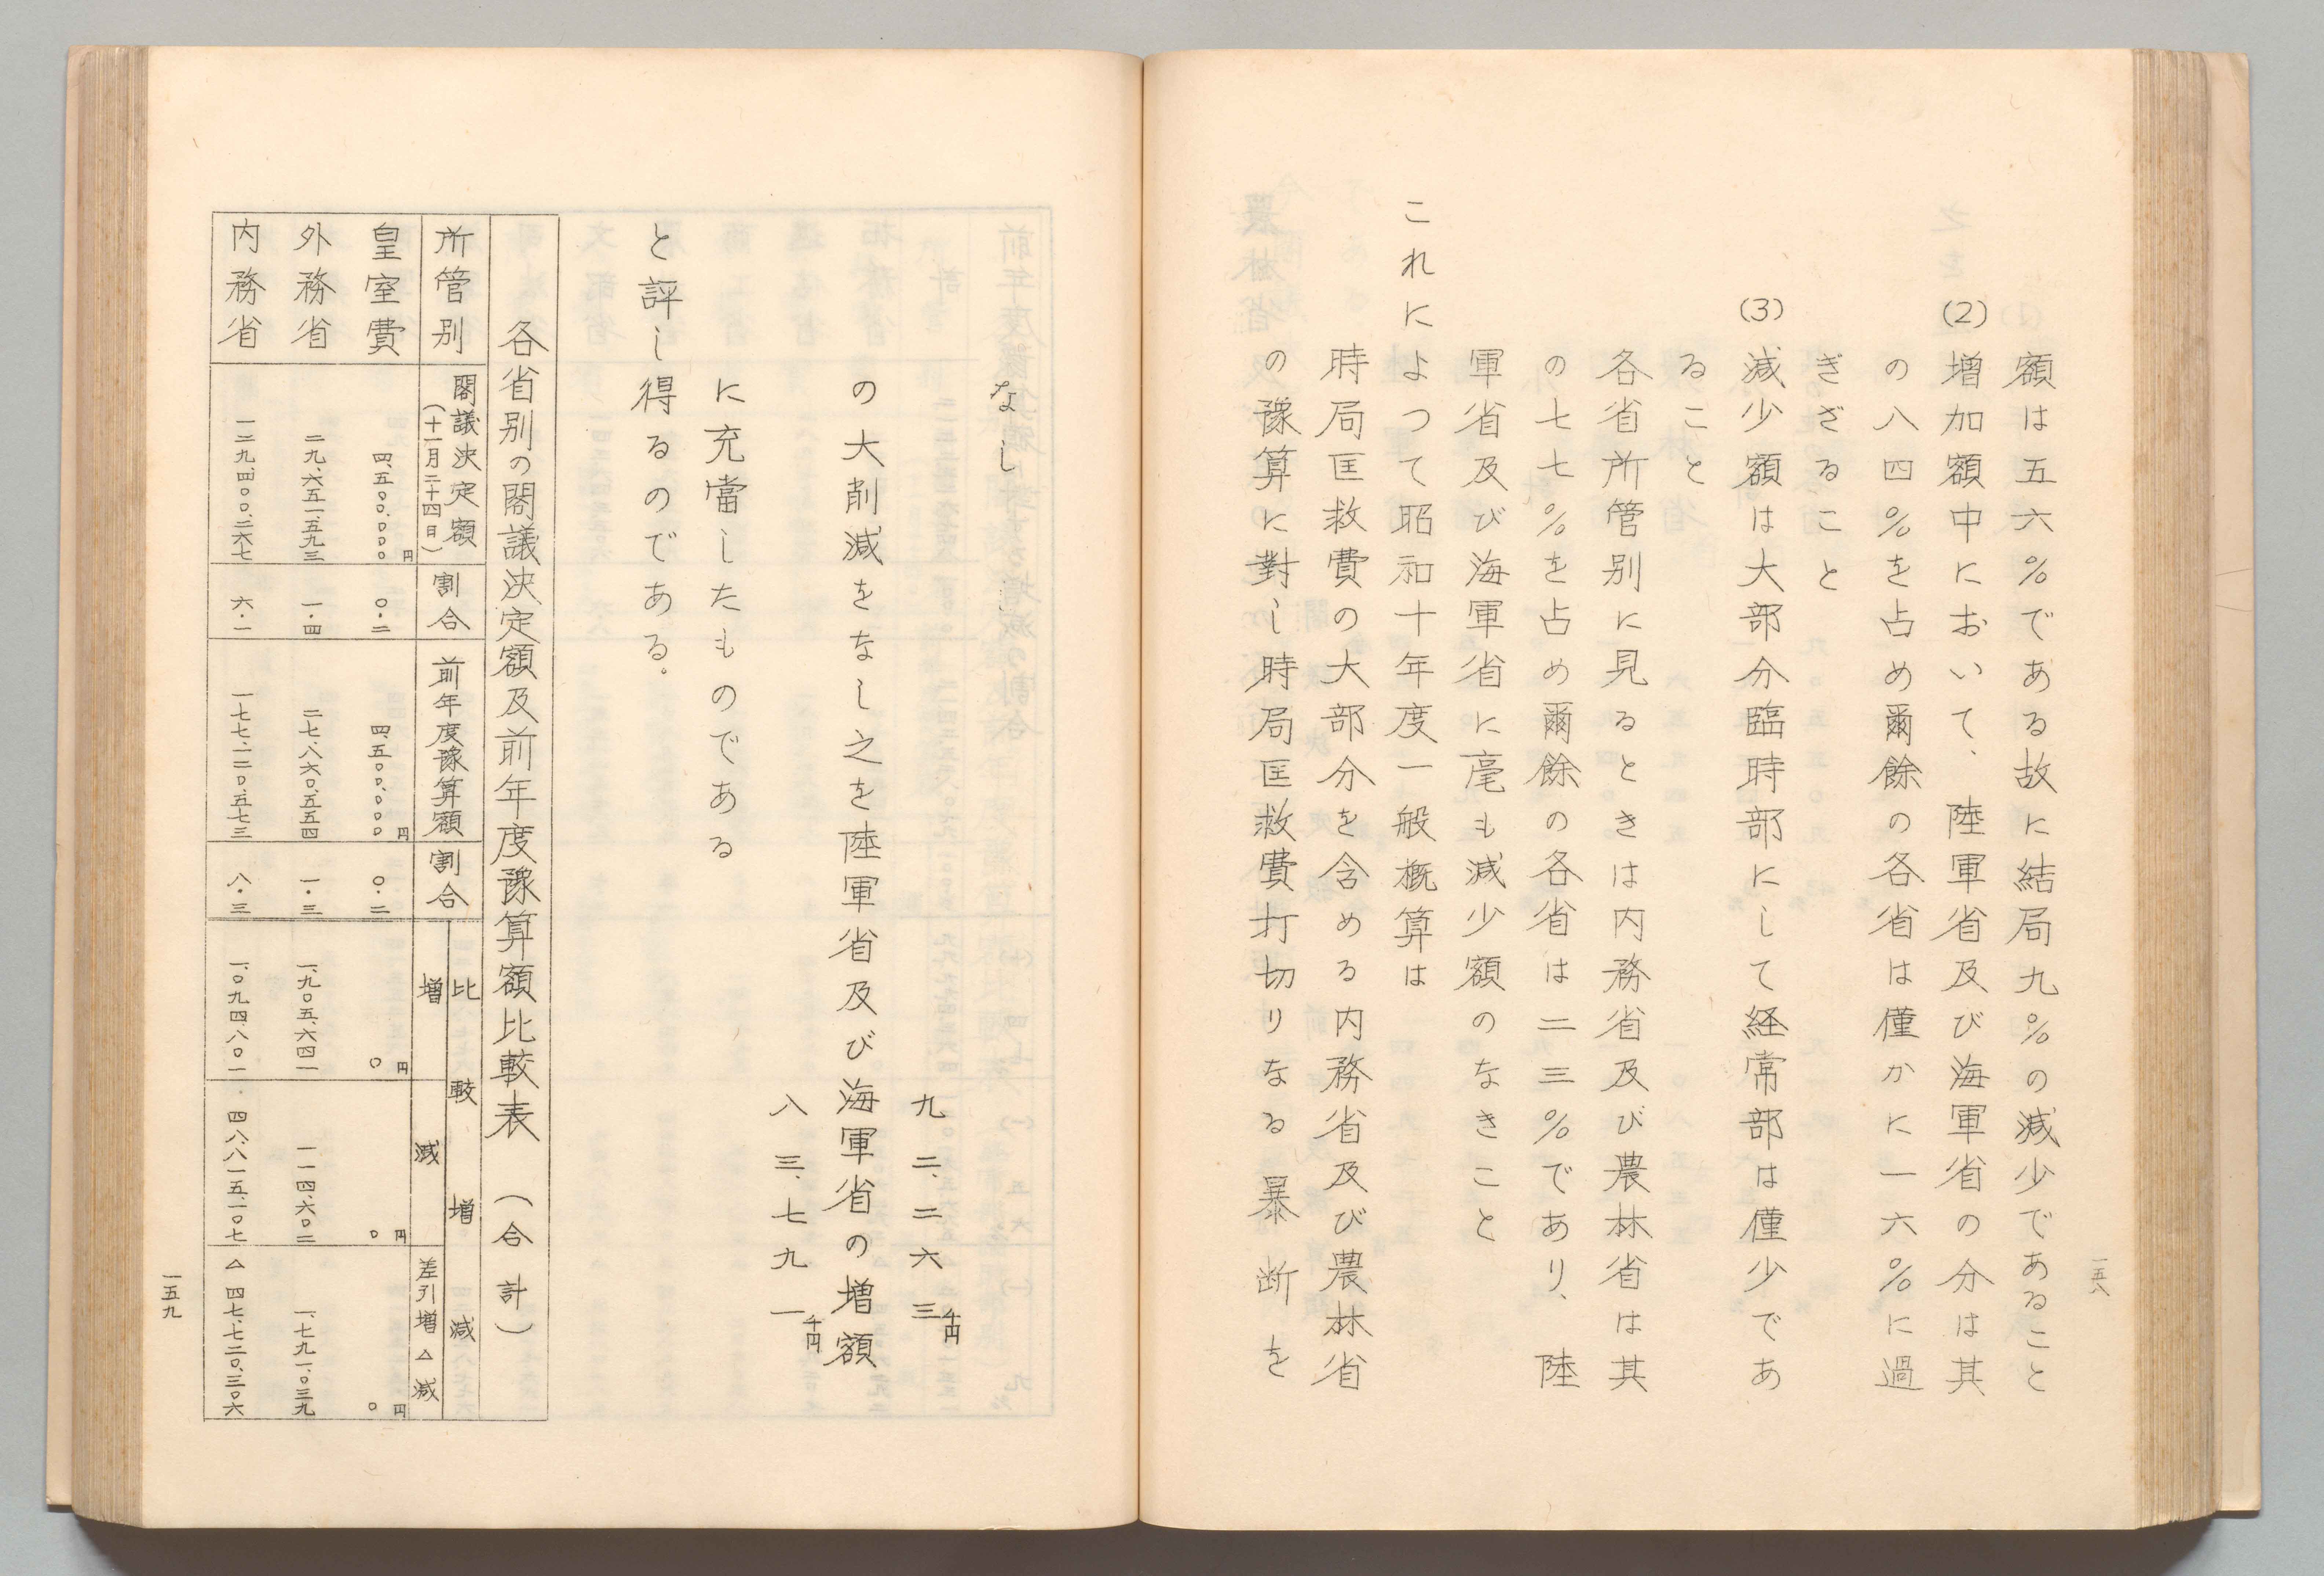 額は五六％である故に結局九％の減少であること
(2)増加額中において、陸軍省及び海軍省の分は其
の八四％を占め爾餘の各省は僅かに一六％に過
ぎざること
(3)減少額は大部分臨時部にして経常部は僅少であ
ること
各省所管別に見るときは内務省及び農林省は其
の七七％を占め爾餘の各省は二三％であり、陸
軍省及び海軍省に毫も減少額のなきこと
これによつて昭和十年度一般概算は
時局匡救費の大部分を含める内務省及び農林省
の豫算に對し時局匡救費打切りなる暴断を
一五八
なし
九二、二六三千円
の大削減をなし之を陸軍省及び海軍省の増額
八三、七九一千円
に充當したものである
と評し得るのである。
各省別の閣議決定額及前年度豫算額比較表（合計）
所管別 閣議決定額（十一月二十四日） 割合 前年度豫算額 割合 比較増減 増 減 差引増△減
皇室費 四、五〇〇、〇〇〇円 〇・二 四、五〇〇、〇〇〇円 〇・二 〇円 〇円 〇円
外務省 二九、六五一、五九三 一・四 二七、八六〇、五五四 一・三 一、九〇五、六四一 一一四、六〇二 一、七九一、〇三九
内務省 一二九、四〇〇、二六七 六・一 一七七、一二〇、五七三 八・三 一、〇九四、八〇一 四八、八一五、一〇七 △四七、七二〇、三〇六
一五九